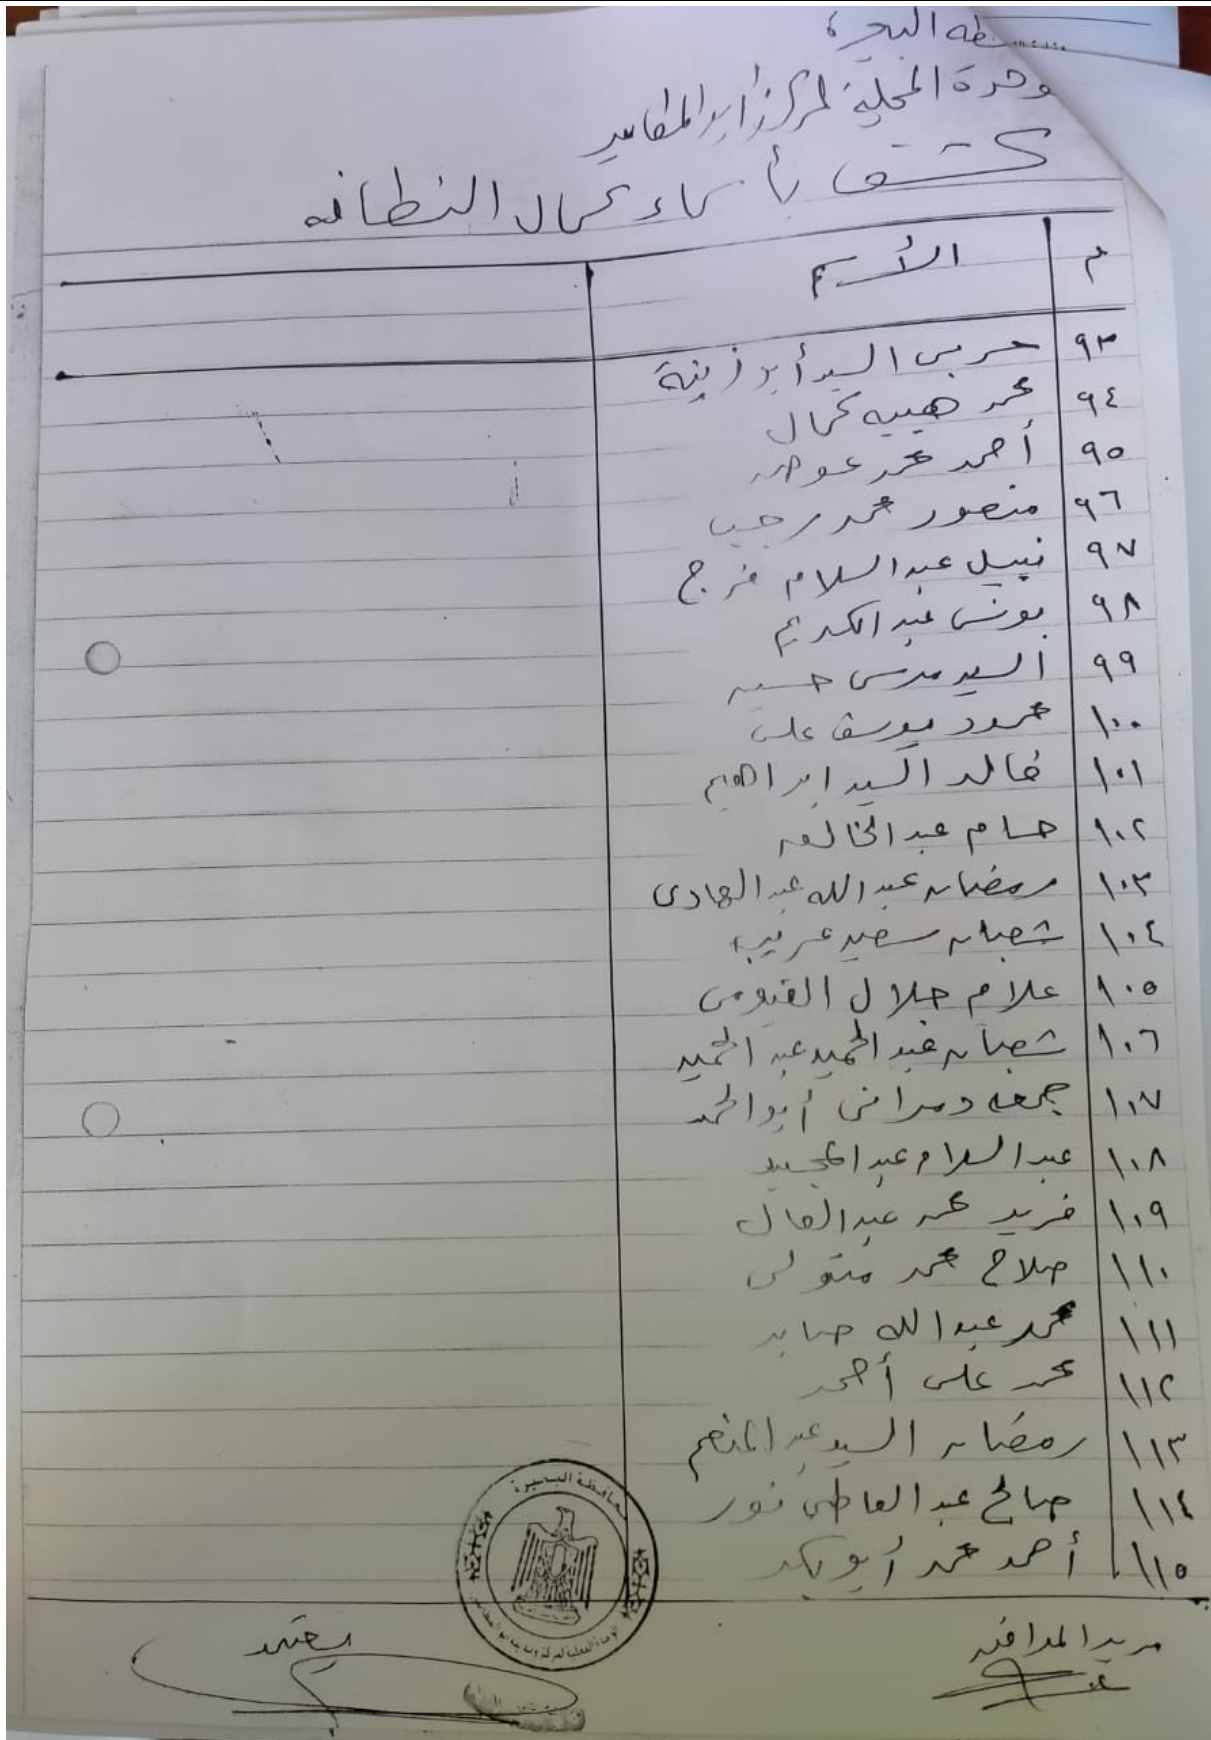 البحيرة
وحدة المحلية لمركز أبو المطامير
كشف بأسماء عمال النظافه
م الأسم
٩٣ حربى السيد أبو زينة
٩٤ محمد هيبه كمال
٩٥ أحمد محمد عوض
٩٦ منصور محمد رجب
٩٧ نبيل عبد السلام فرج
٩٨ يونس عبد الكريم
٩٩ السيد مرسى حسين
١٠٠ محمود يوسف على
١٠١ خالد السيد ابراهيم
١٠٢ حسام عبد الخالق
١٠٣ رمضان عبد الله عبد الهادى
١٠٤ شعبان سعيد غريب
١٠٥ علام جلال الفيومى
١٠٦ شعبان عبد الحميد عبد الحميد
١٠٧ جمعه أبو الحمد
١٠٨ عبد السلام عبد المجيد
١٠٩ فريد محمد عبد العال
١١٠ صلاح محمد متولى
١١١ محمد عبد الله صابر
١١٢ محمد على أحمد
١١٣ رمضان السيد عبد المنعم
١١٤ صالح عبد العاطى نور
١١٥ أحمد محمد أبو بكر
محافظة البحيرة
يعتمد